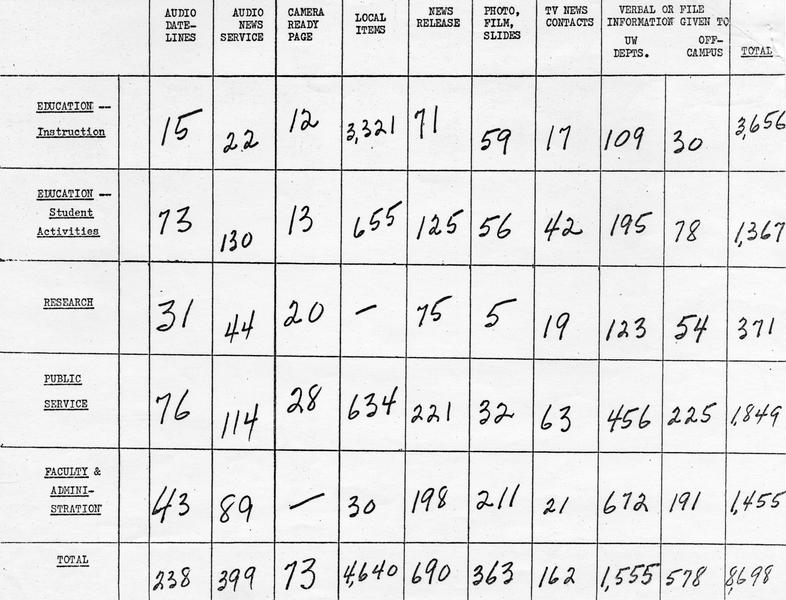 AUDIO DATE- LINES	AUDIO NEWS SERVICE	CAMERA READY PAGE	LOCAL ITEMS	NEWS RELEASE	PHOTO, FILM, SLIDES	TV NEWS CONTACTS	VERBAL OR FILE INFORMATION GIVEN TO
UW DEPTS.	OFF- CAMPUS	TOTAL
EDUCATION --
Instruction	15	22	12	3,321	71	59	17	109	30	3,656
EDUCATION --
Student
Activities	73	130	13	655	125	56	42	195	78	1,367
RESEARCH	31	44	20	—	75	5	19	123	54	371
PUBLIC
SERVICE	76	114	28	634	221	32	63	456	225	1,849
FACULTY &
ADMINI-
STRATION	43	89	—	30	198	211	21	672	191	1,455
TOTAL	238	399	73	4,640	690	363	162	1,555	578	8,698